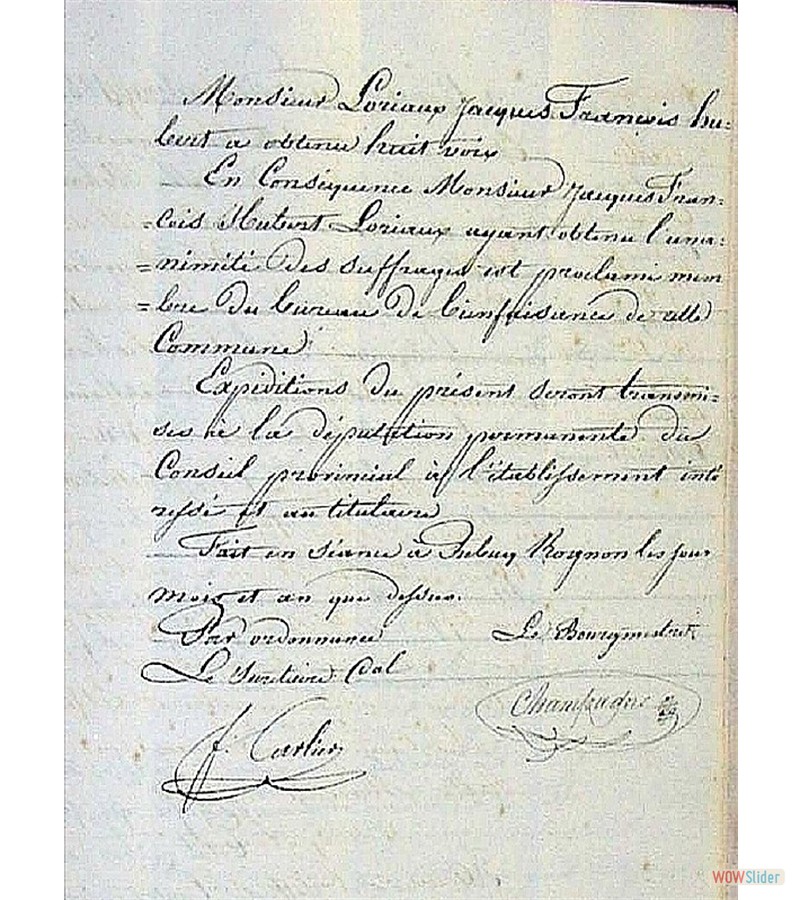 Monsieur Loriaux Jacques François hu-
bert a obtenu huit voix
En Conséquence Monsieur Jacques Fran-
=çois Hubert Loriaux ayant obtenu l'una-
=nimité des suffrages est proclamé mem
=bre du bureau de bienfaisance de cette
Commune
Expéditions du présent seront transmi-
ses à la députation permanente du
Conseil provincial à l'établissement inté
ressé et au titulaire
Fait en séance à les jour
mois et an que dessus.
Par ordonnance Le Bourgmestre
Le Secrétaire Cal
Champagne
f. Carlier
WOWSlider